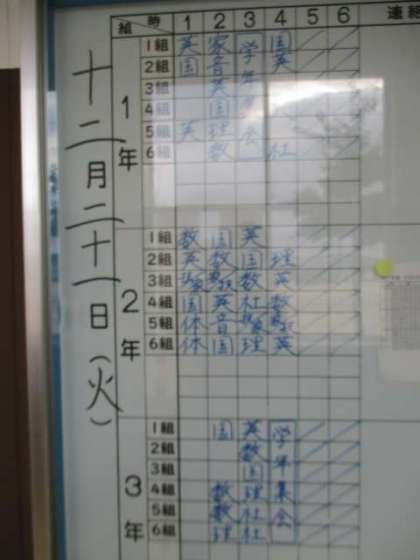 十二月二十一日(火)
組 時 1 2 3 4 5 6 連絡
1年
1組 英 家 学 国
2組 国 音 年 英
3組 英
4組 国
5組 英 理 会
6組 数 社
2年
1組 数 国 英
2組 英 数 国 理
3組 数 英
4組 国 英 社 数
5組 体 音
6組 体 国 理 英
3年
1組 国 英 学
2組 数 年
3組 国
4組 数 理 集
5組 数 社 会
6組 理 社